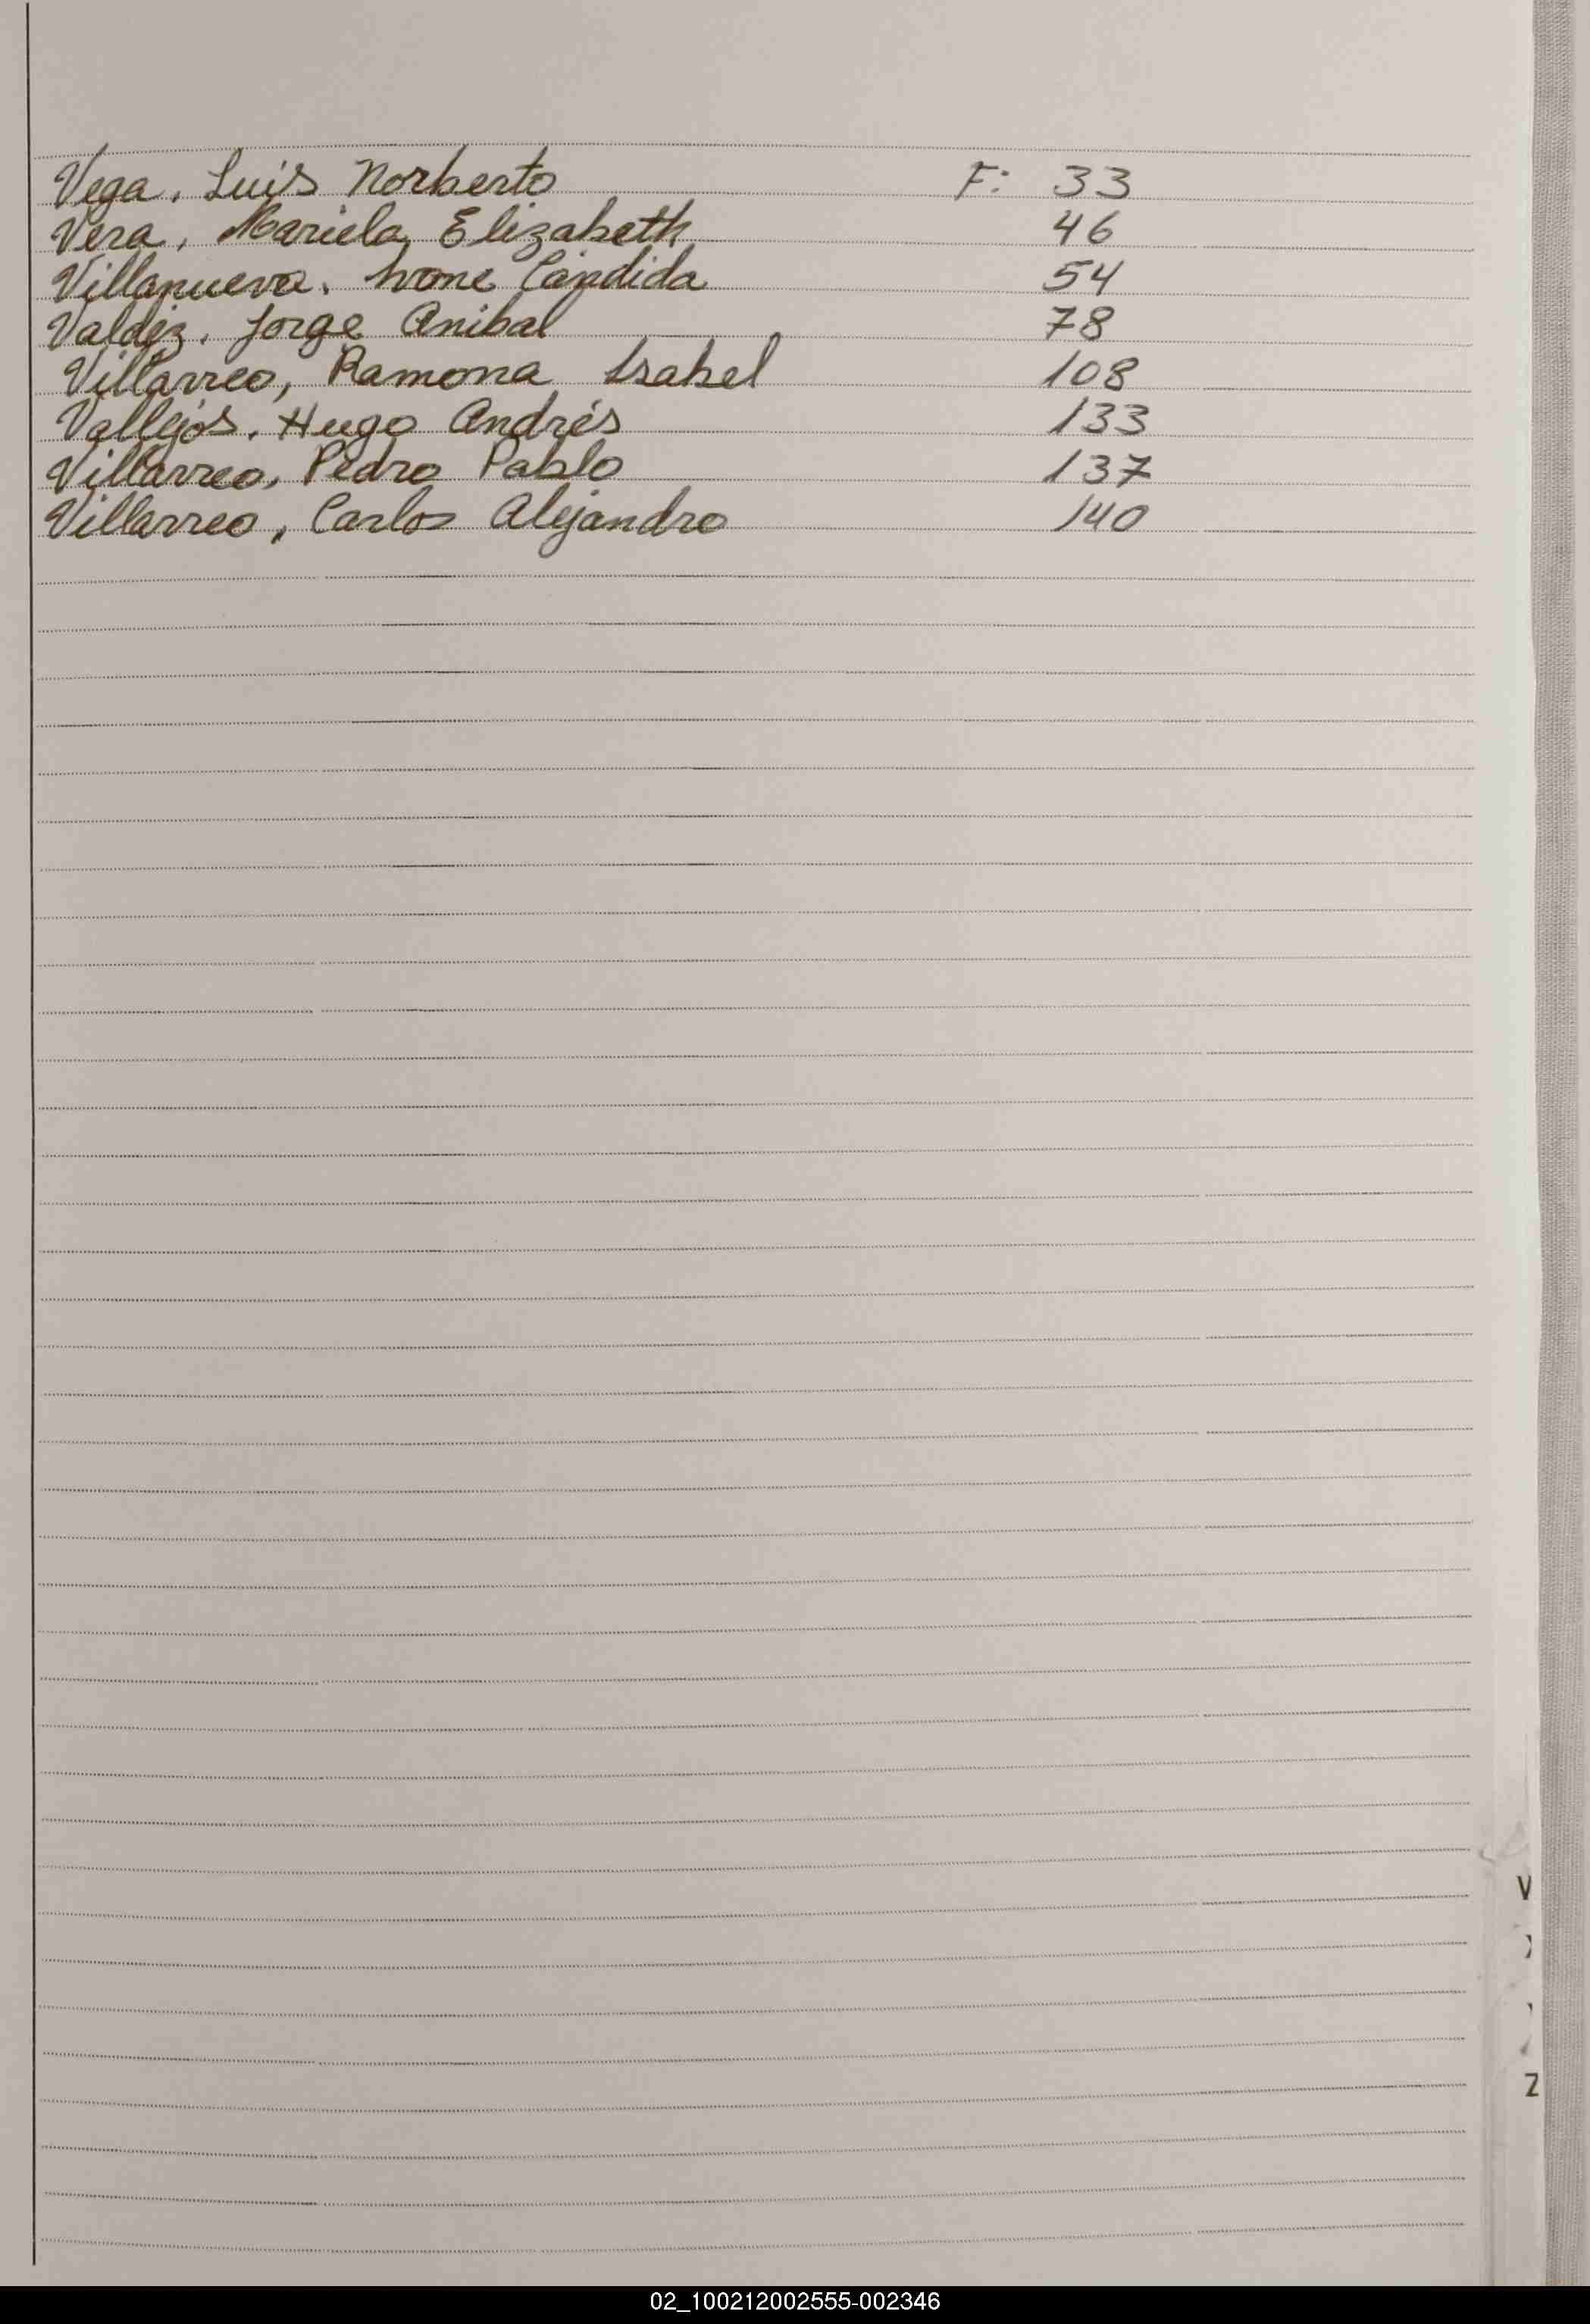 Vega, Luis Norberto F: 33
Vera, Mariela Elizabeth 46
Villanueva, Ivone Cándida 54
Valdez, Jorge Anibal 78
Villarreo, Ramona Isabel 108
Vallejos, Hugo Andrés 133
Villarreo, Pedro Pablo 137
Villarreo, Carlos Alejandro 140
V
Z
02_100212002555-002346